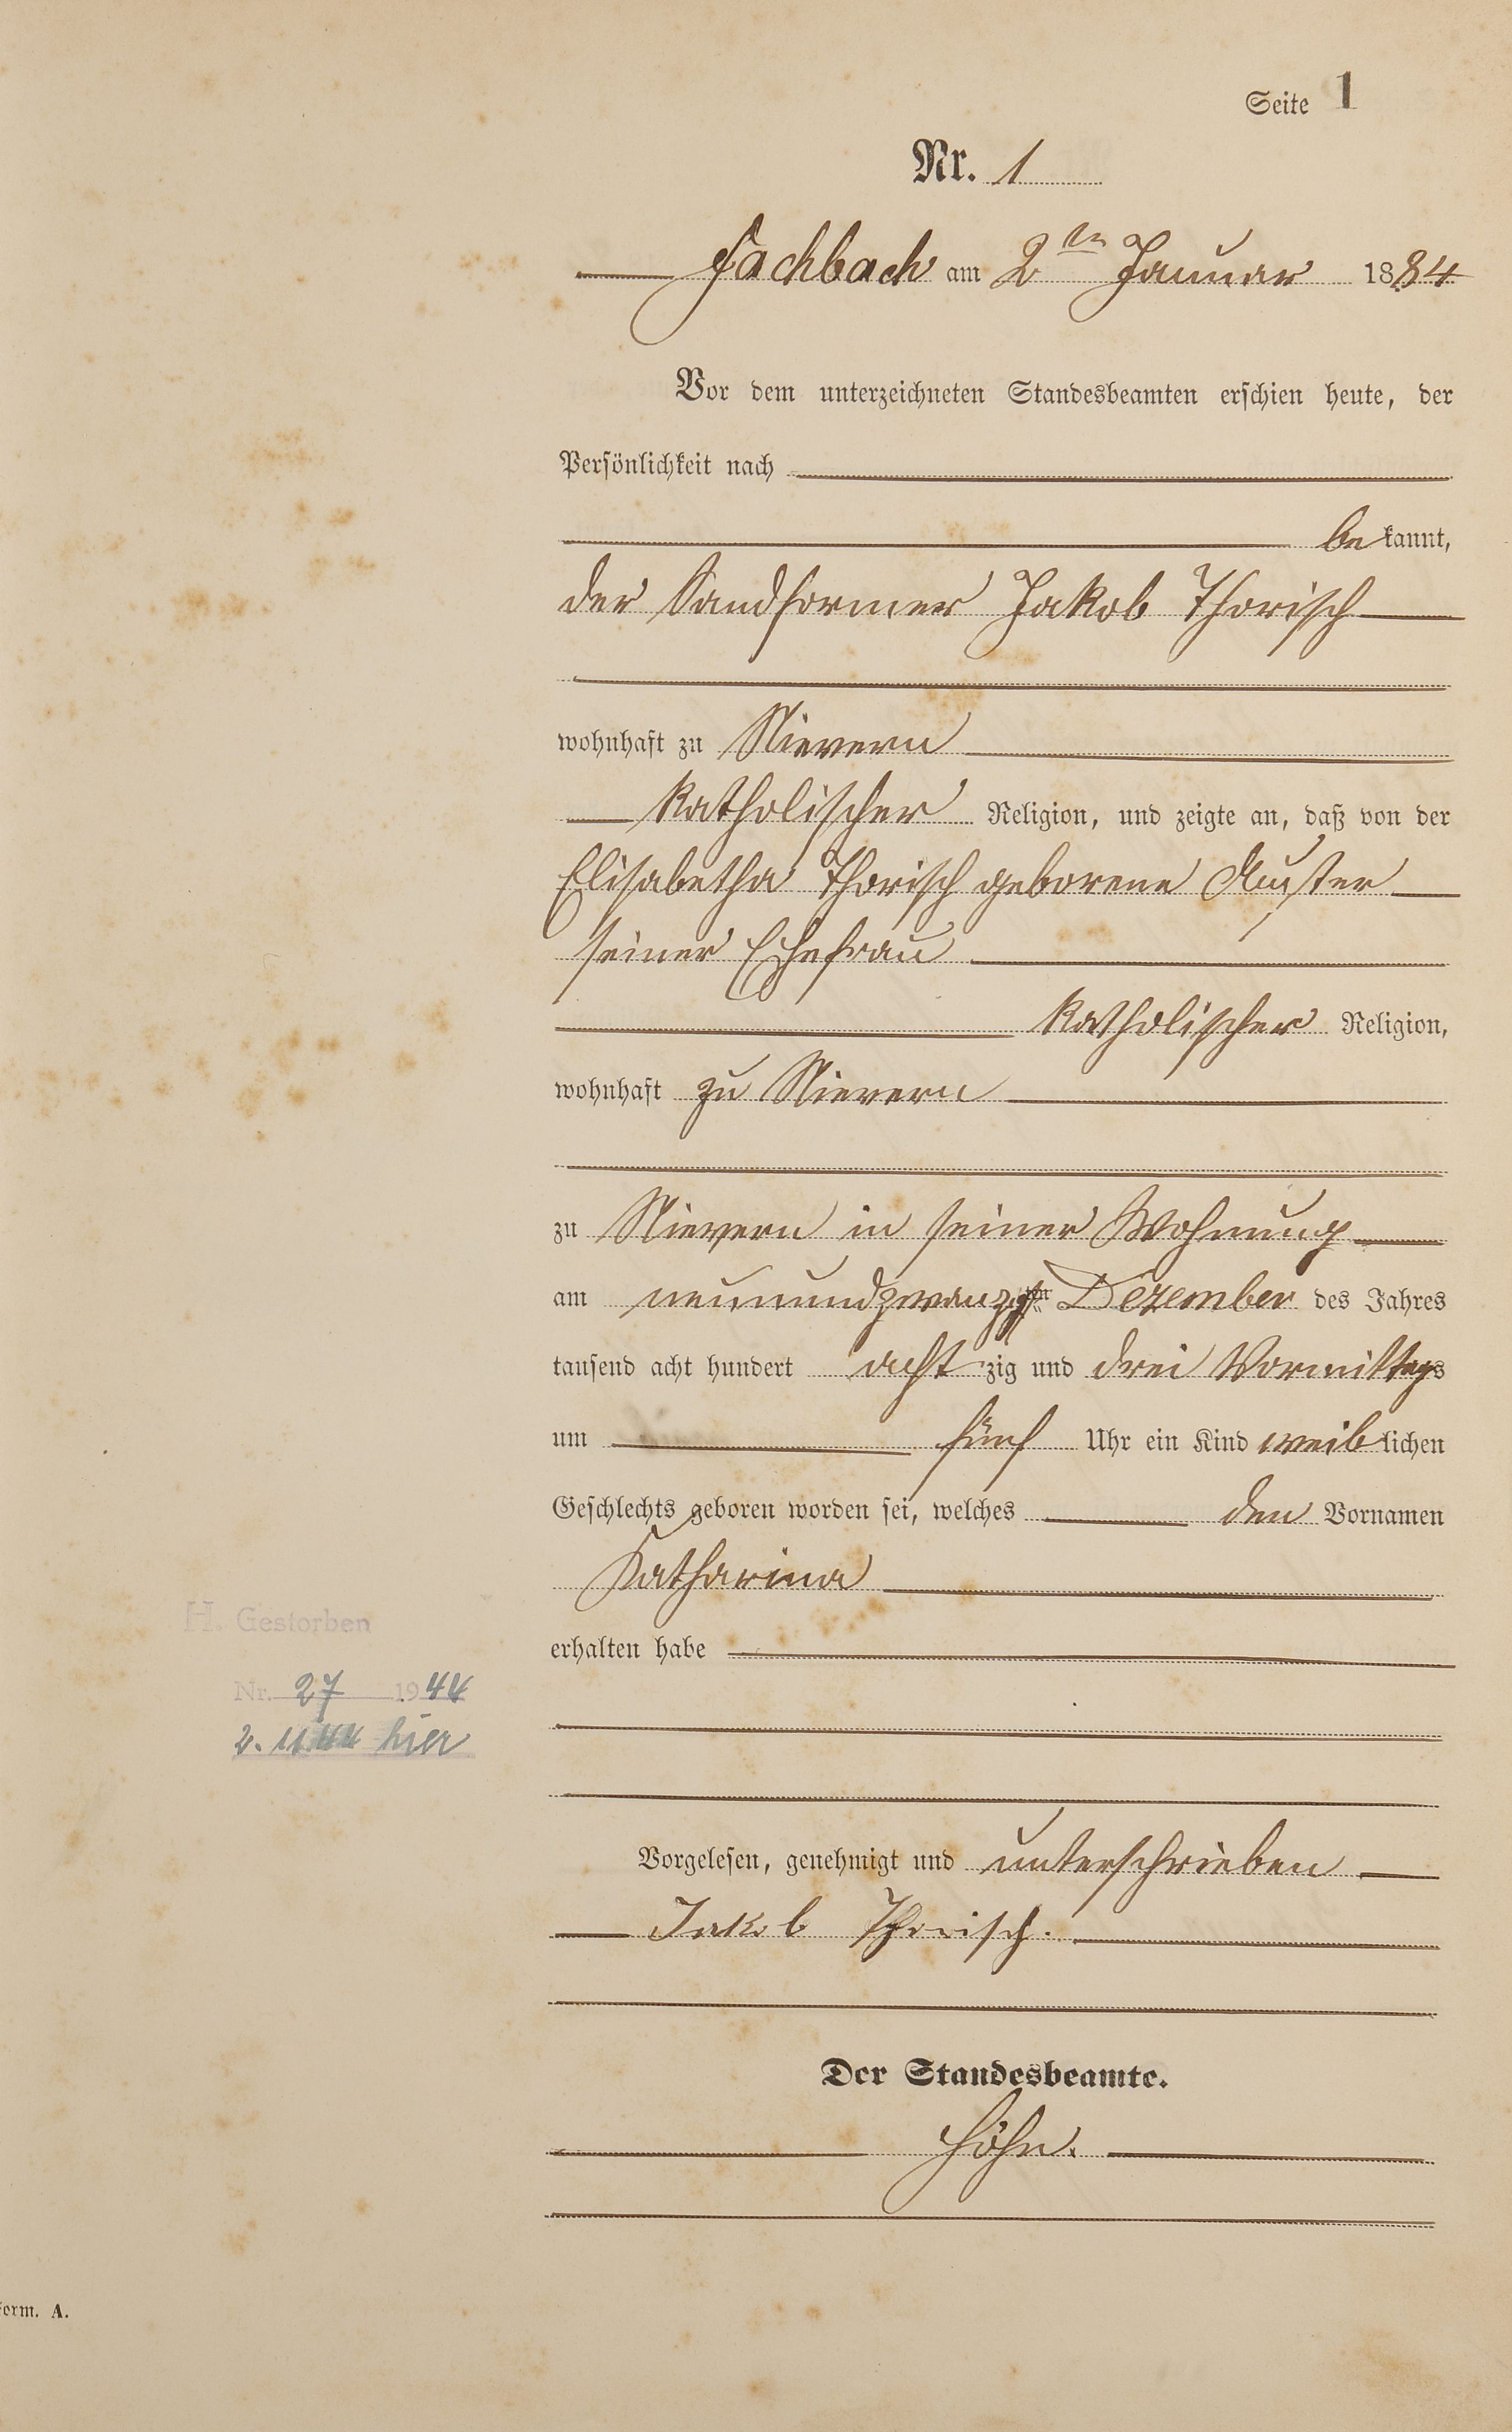 Seite 1
Nr. 1
Fachbach am 2ten Januar 1884
Vor dem unterzeichneten Standesbeamten erschien heute, der
Persönlichkeit nach
bekannt,
der Sandformer Jakob Thorisch
wohnhaft zu Nievern
katholischer Religion, und zeigte an, daß von der
Elisabetha Thorisch geborene
seiner Ehefrau
katholischer Religion,
wohnhaft zu Nievern
zu Nievern in seiner Wohnung
am neunundzwanzigsten Dezember des Jahres
tausend acht hundert achtzig und drei Vormittags
um fünf Uhr ein Kind weiblichen
Geschlechts geboren worden sei, welches den Vornamen
Katharina
erhalten habe
H. Gestorben
Nr. 27 1944
2. hier
Vorgelesen, genehmigt und unterschrieben
Jakob Thorisch.
Der Standesbeamte.
Höhn.
Form. A.